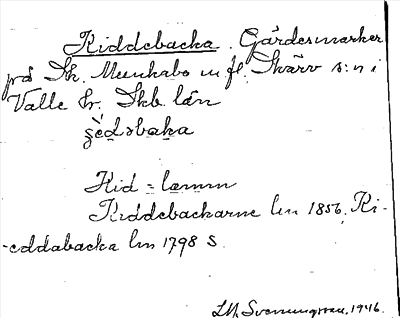 Kiddebacka. Gärdesmarker
på Sk. Munkabo m fl. Skärv s:n i
Valle hr. Skb. län
Kid = lamm
Kiddebackarne lm 1856, Ki-
-eddabacka lm 1798 S.
1946.